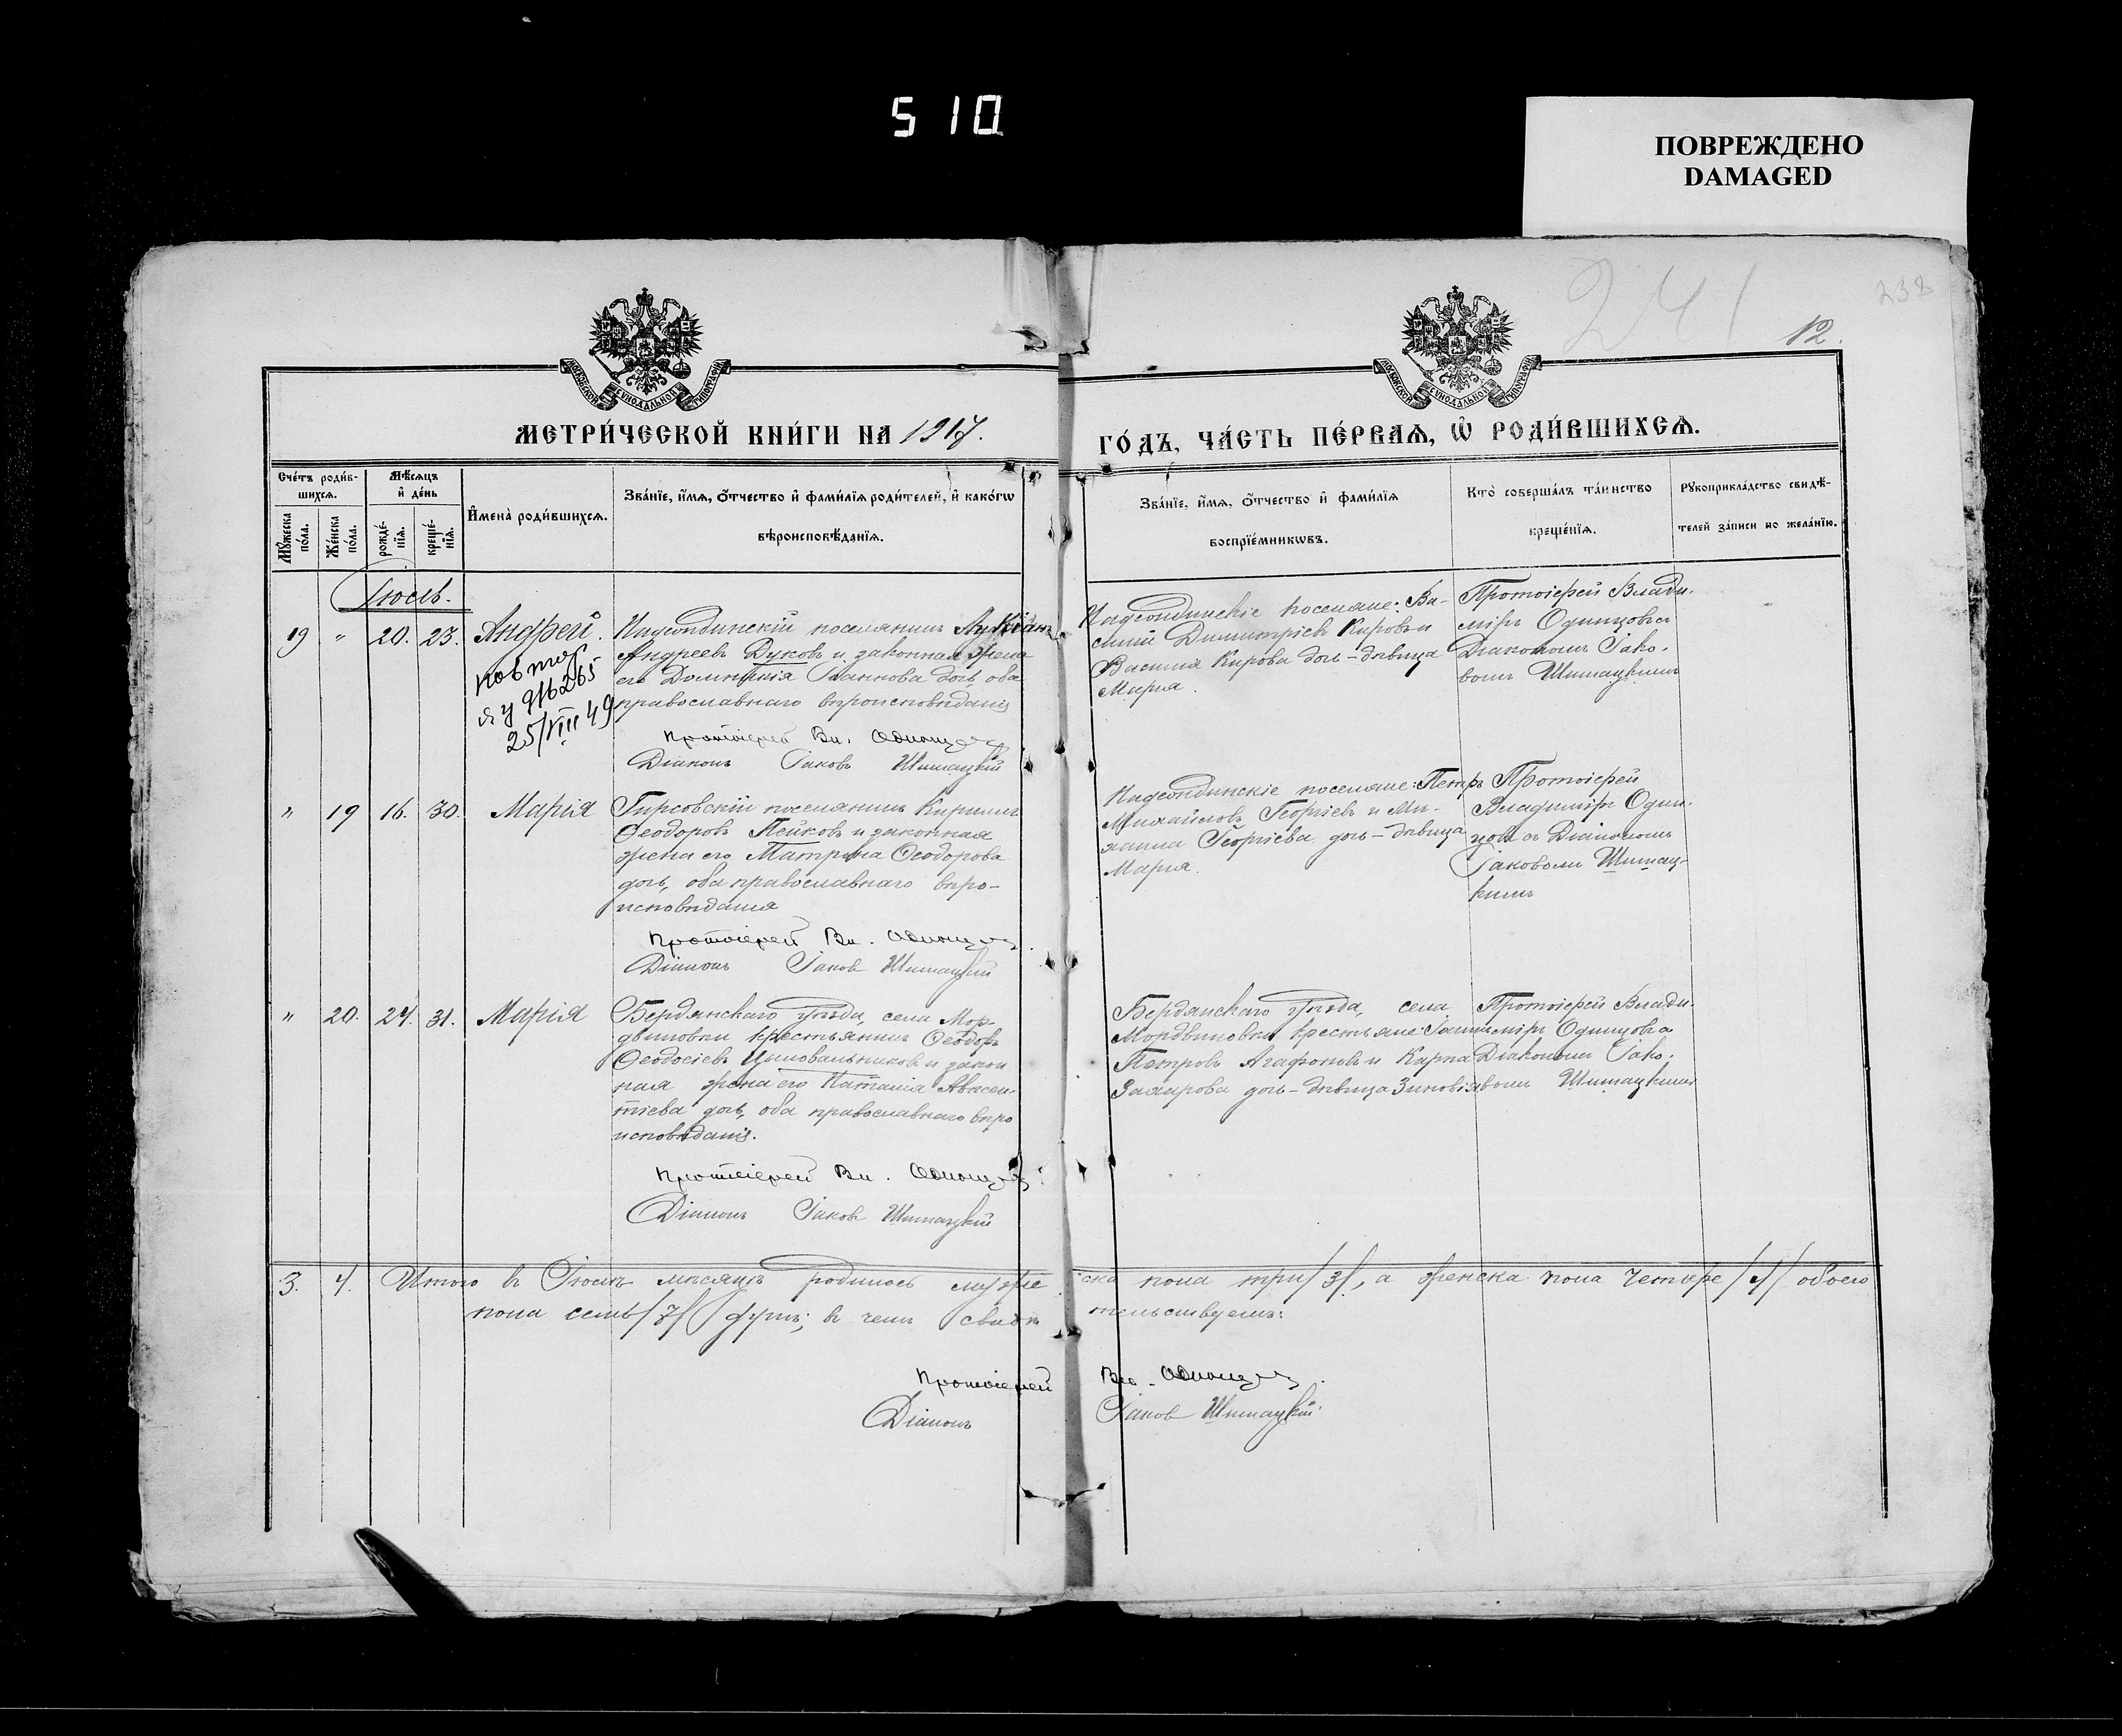 510
ПОВРЕЖДЕНО
DAMAGED
241
238
12.
МОСКОВСКОЙ СѴНОДАЛЬНОЙ ТИПОГРАФІИ
МОСКОВСКОЙ СѴНОДАЛЬНОЙ ТИПОГРАФІИ
МЕТРИ́ЧЕСКОЙ КНИ́ГИ НА 1917.
ГО́ДЪ, ЧА́СТЬ ПЕ́РВАѦ, Ѡ҆ РОДИ́ВШИХСѦ.
Сче́тъ роди́в-
шихсѧ.
Мꙋ́жеска по́ла.
Же́нска по́ла.
Мѣ́сѧцъ
и҆ де́нь
рожде́-
нїѧ.
креще́-
нїѧ.
И҆мена̀ роди́вшихсѧ.
Зва́нїе, и҆́мѧ, ѻ҆́тчество и҆ фами́лїѧ роди́телей, и҆ како́гѡ
вѣроисповѣ́данїѧ.
Зва́нїе, и҆́мѧ, ѻ҆́тчество и҆ фами́лїѧ
воспрїе́мникѡвъ.
Кто̀ соверша́лъ та́инство
креще́нїѧ.
Рꙋкоприкла́дство свидѣ́-
телей за́писи по жела́нїю.
Іюль.
19 " 20. 23. Андрей.
повтор
ЯУ 916265
25/VIII 49
поселянинъ Лукіанъ
Андреевъ Дуковъ и законная жена
его Домникія Іоаннова дочь оба
православнаго вѣроисповѣданія
Протоіерей Вл. Одинцовъ
Діаконъ Іаковъ Шишацкій
поселяне: Ва-
силій Димитріевъ Кировъ и
Василія Кирова дочь-дѣвица
Марія.
Протоіерей Влади-
міръ Одинцовъ съ
Діакономъ Іако-
вомъ Шишацкимъ
" 19 16. 30. Марія
Гирсовскій поселянинъ Кириллъ
Ѳеодоровъ Пейковъ и законная
жена его Матрона Ѳеодорова
дочь, оба православнаго вѣро-
исповѣданія
Протоіерей Вл. Одинцовъ.
Діаконъ Іаковъ Шишацкій
поселяне: Петръ
Михайловъ Георгіевъ и Ми-
хаила Георгіева дочь-дѣвица
Марія.
Протоіерей
Владиміръ Один-
цовъ съ Діакономъ
Іаковомъ Шишац-
кимъ
" 20. 24. 31. Марія
Бердянскаго уѣзда, села Мор-
двиновки крестьянинъ Ѳеодоръ
Ѳеодосіевъ Цѣловальниковъ и закон
ная жена его Наталія Авксен-
тіева дочь, оба православнаго вѣро
исповѣданія.
Протоіерей Вл. Одинцовъ.
Діаконъ Іаковъ Шишацкій
Бердянскаго уѣзда, села
Мордвиновки крестьяне:
Петровъ Агафоновъ и Карпа
Захарова дочь-дѣвица Зиновія
Протоіерей Влади-
міръ Одинцовъ съ
Діакономъ Іако-
вомъ Шишацкимъ
3. 4. Итого въ Іюлѣ мѣсяцѣ родилось муже
ска пола три /3/, а женска пола четыре /4/ обоего
пола семь /7/ душъ; въ чемъ свидѣ
тельствуемъ:
Протоіерей Вл. Одинцовъ.
Діаконъ Іаковъ Шишацкій.